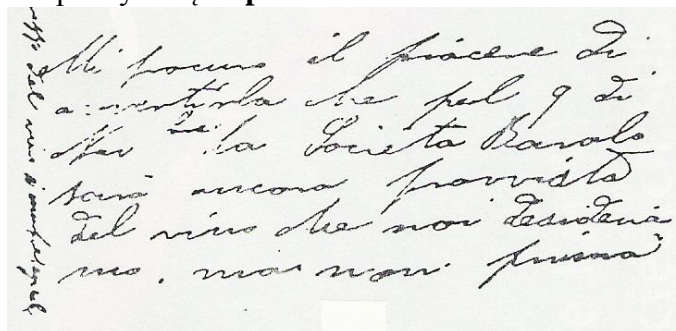 Mi procuro il piacere di
avvertirla che pel 9 di
la Società Barolo
sarà ancora provvista
del vino che noi desideria
mo, ma non prima
del vino